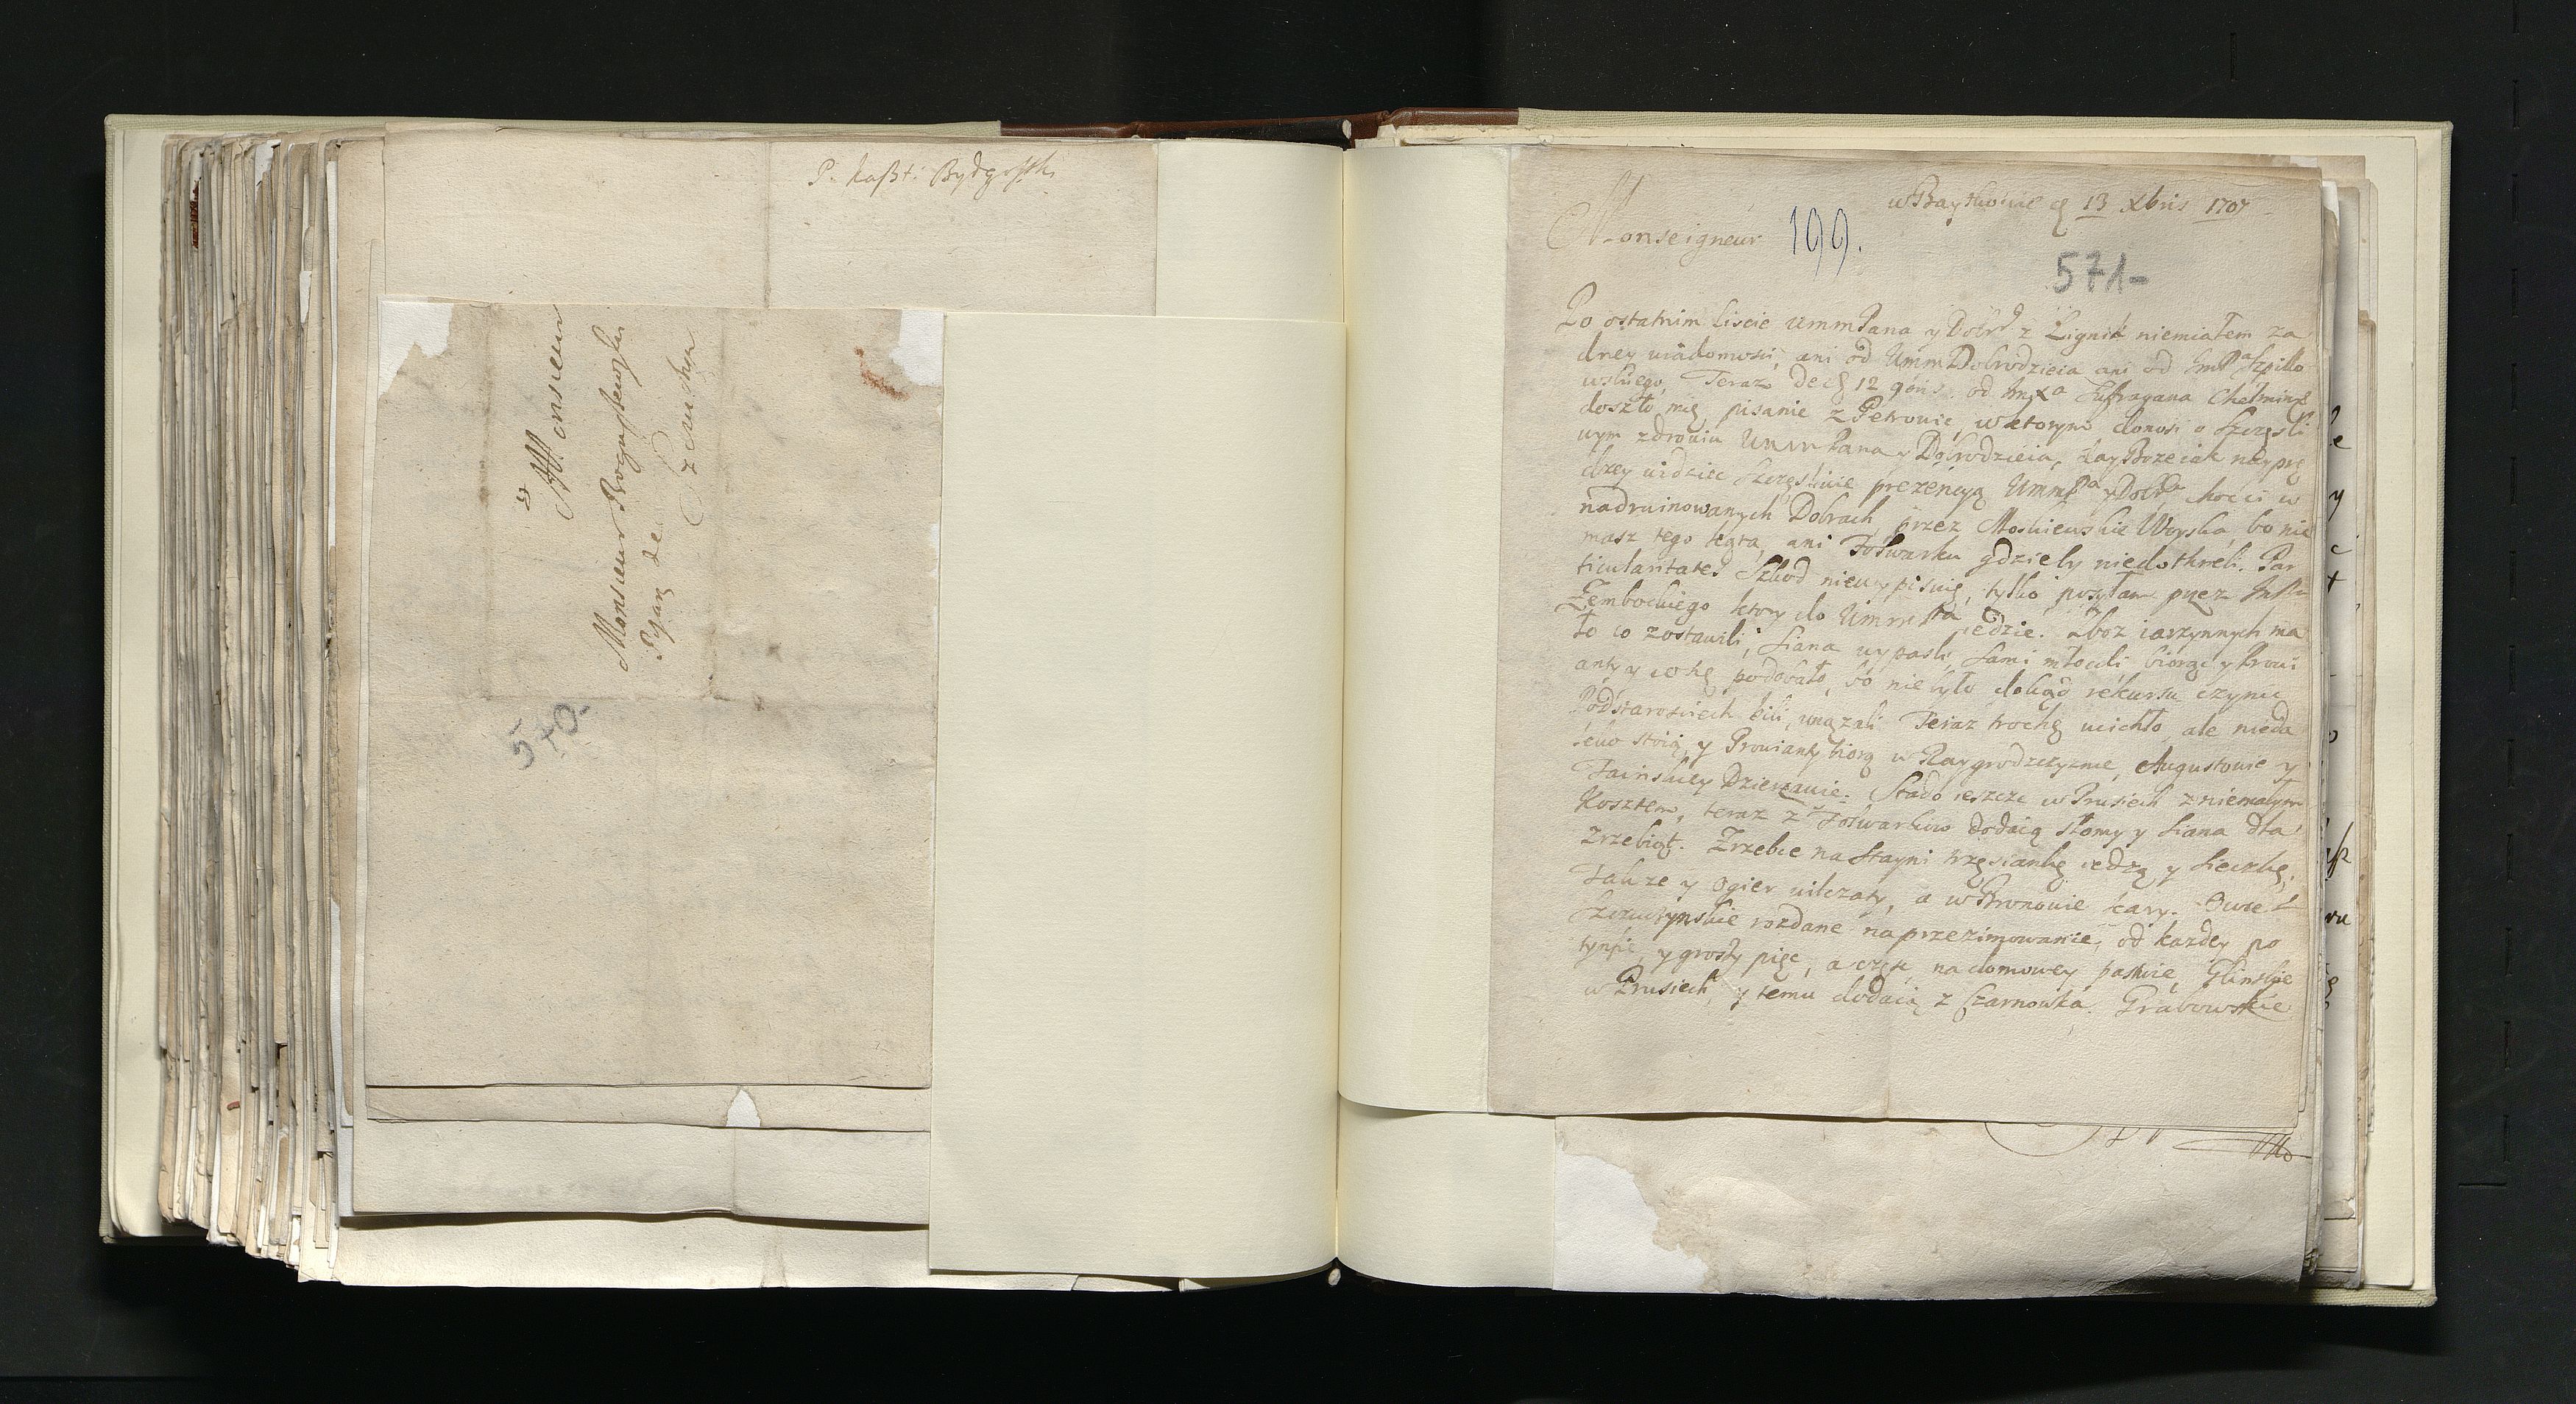 P. Kaszt: Bydgoski
a Monsieur
Monsieur Rogustewski
Pisarz de
Szczuczyn
570-
w Baytkowie d 13 Xbris 1707
Monseigneur
199.
571-
Po ostatnim liscie UmmPana y Dobrd z Lignik niemiałem za
dney wiadomosci, ani od UmmDobrodzieia ani od ImPa Szpillo
wskiego, Teraz de 12 od Imxa Sufragana Chełminsk
doszło mię pisanie z Petrowic, w ktorym donosi o szczęsli
wym zdrowiu UmmPana y Dobrodzieia, day Boze iak nayprę
dzey widziec szczęsliwie prezencyą UmmPa y Dobra choc i w
nadruinowanych Dobrach, przez Moskiewskie Woyska, bo nie
masz tego kąta, ani Folwarku gdzieby niedotkneli. Par
ticularitates Szkod niewypisuię, tylko posyłam przez ImPa
Zembockiego ktory do UmmPa iedzie. Zboz iarzynnych ma
ło co zostawili, Siana wypasli, sami młocili biorąc y Prowi
anty y co się podobało, bo nie było dokąd rekursu czynic
Podstarosciech bili, wiązali Teraz trochę ucichło, ale nieda
leko stoią, y Prowianty biorą w Raygrodzczyznie, Augustowie y
Fainskiey Dzierzawie. Stado ieszcze w Prusiech z niemałym
Kosztem, teraz z Folwarkow dodaią słomy y Siana dla
Zrzebiąt. Zrzebce na Stayni trzęsiankę iedzą y Sieczkę,
Takze y Ogier wilczaty, a w Bronowie kary. Owce
Szczuczynskie rozdane na przezimowanie, od kazdey po
tynfie, y groszy pięc, a częsc na domowey paszwie, Glinskie
w Prusiech, y temu dodaią z Czarnowka. Grabowskie